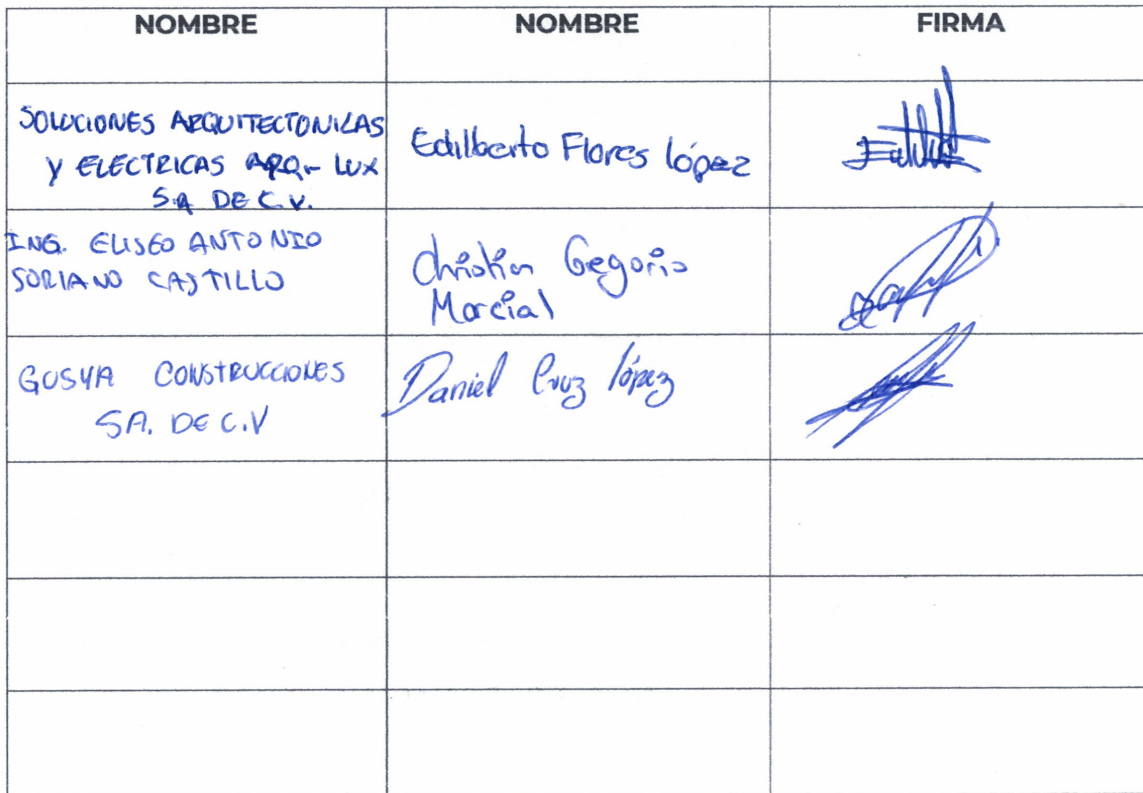 NOMBRE NOMBRE FIRMA
SOLUCIONES ARQUITECTONICAS
Y ELECTRICAS ARQ-LUX
S.A DE C.V.
Edilberto Flores López
ING. ELISEO ANTONIO
SORIANO CASTILLO
Christian Gegorio
Marcial
GUSYA CONSTRUCCIONES
SA. DE C.V
Daniel Cruz lópez